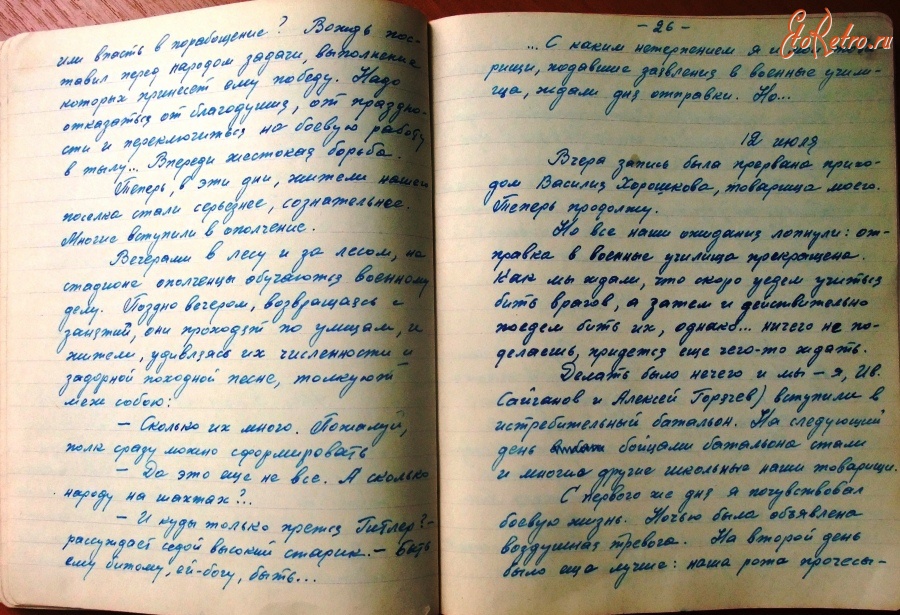 или впасть в порабощение? Вождь пос-
тавил перед народом задачи, выполнение
которых принесет ему победу. Надо
отказаться от благодушия, от праздно-
сти и переключиться на боевую работу
в тылу... Впереди жестокая борьба.
Теперь, в эти дни, жители нашего
поселка стали серьезнее, сознательнее.
Многие вступили в ополчение.
Вечерами в лесу и за лесом, на
стадионе ополченцы обучаются военному
делу. Поздно вечером, возвращаясь с
занятий, они проходят по улицам, и
жители, удивляясь их численности и
задорной походной песне, толкуют
меж собою:
– Сколько их много. Пожалуй,
полк сразу можно сформировать
– Да это еще не все. А сколько
народу на шахтах?..
– И куды только претя Гитлер? –
рассуждает седой высокий старик. – Быть
ему битому, ей-богу, быть...
– 26 –
EtoRetro.ru
... С каким нетерпением я и мои това-
рищи, подавшие заявления в военные учили-
ща, ждали дня отправки. Но...
12 июля
Вчера запись была прервана прихо-
дом Василия Хорошкова, товарища моего.
Теперь продолжу.
Но все наши ожидания лопнули: от-
правка в военные училища прекращена.
Как мы ждали, что скоро уедем учиться
бить врагов, а затем и действительно
поедем бить их, однако... ничего не по-
делаешь, придется еще чего-то ждать.
Делать было нечего и мы – я, Ив.
Сайганов и Алексей Горячев) вступили в
истребительный батальон. На следующий
день бойцами батальона стали
и многие другие школьные наши товарищи.
С первого же дня я почувствовал
боевую жизнь. Ночью была объявлена
воздушная тревога. На второй день
было еще лучше: наша рота прочесы-